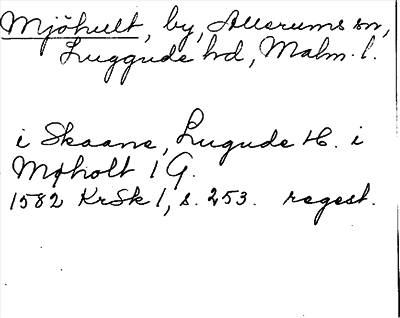 Mjöhult, by, Allerums sn,
Luggude hd, Malm. l.
i Skaane, Lugude H. i
Møholt 1 G.
1582 KrSk 1, s. 253. regest.